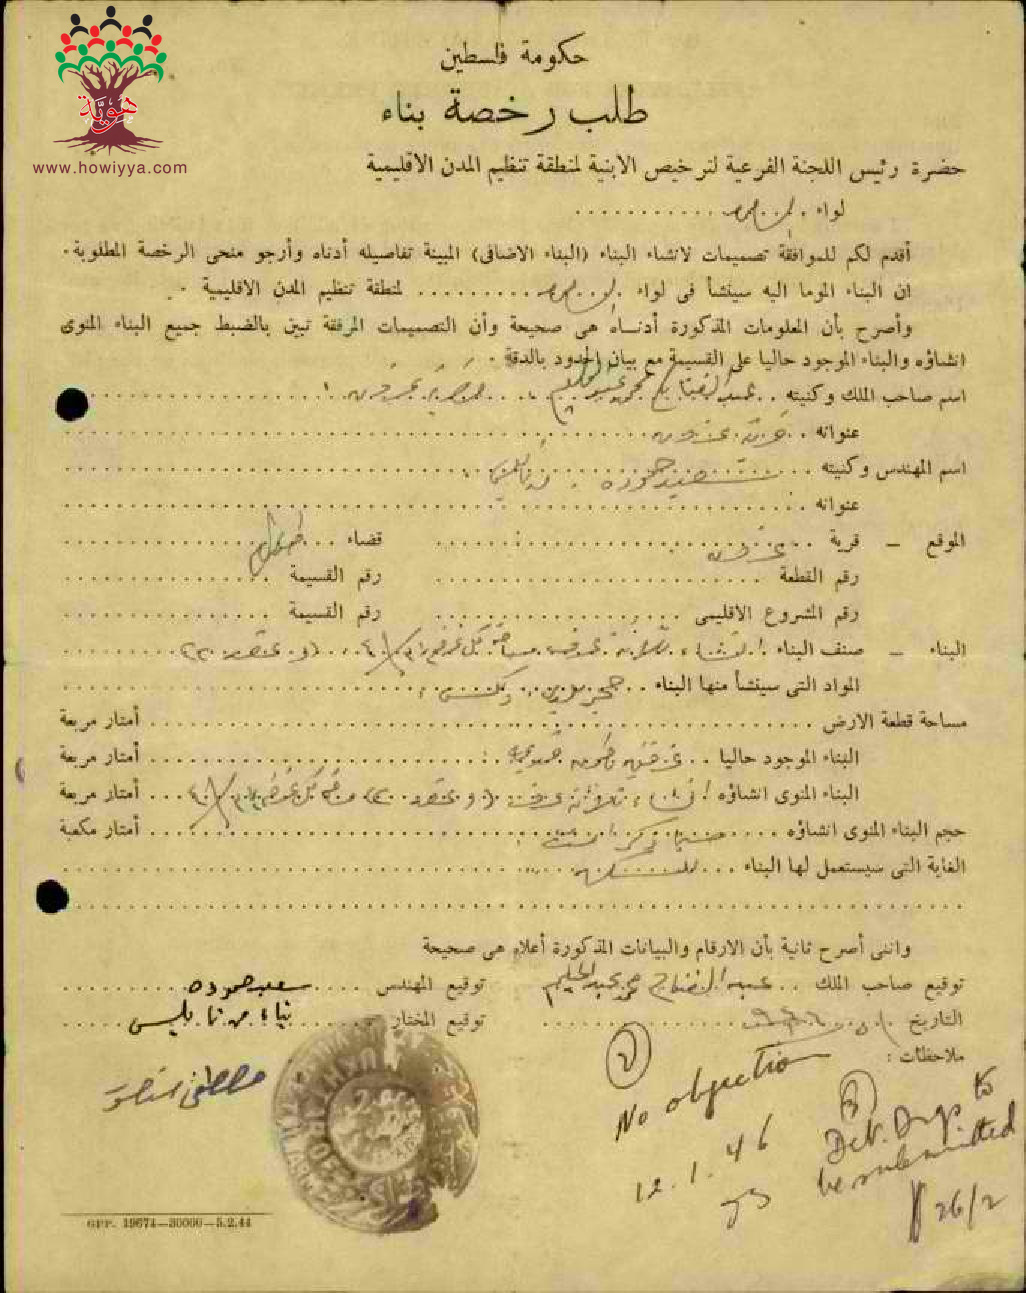 هوية
www.howiyya.com
حكومة فلسطين
طلب رخصة بناء
حضرة رئيس اللجنة الفرعية لترخيص الابنية لمنطقة تنظيم المدن الاقليمية
لواء
أقدم لكم للموافقة تصميمات لانشاء البناء (البناء الاضافى) المبينة تفاصيله أدناه وأرجو منحى الرخصة المطلوبة.
ان البناء الموما اليه سينشأ فى لواء لمنطقة تنظيم المدن الاقليمية .
وأصرح بأن المعلومات المذكورة أدناه هى صحيحة وأن التصميمات المرفقة تبين بالضبط جميع البناء المنوى
انشاؤه والبناء الموجود حاليا على القسيمة مع بيان الحدود بالدقة .
اسم صاحب الملك وكنيته عبد الفتاح محمد عبد الحليم
عنوانه قرية عزون
اسم المهندس وكنيته سعيد حموده نابلس
عنوانه
الموقع – قرية عزون قضاء طولكرم
رقم القطعة رقم القسيمة
رقم المشروع الاقليمى رقم القسيمة
البناء – صنف البناء انشاء ثلاثة غرف مساحة كل غرفة
المواد التى سينشأ منها البناء حجر وطين وكلس
مساحة قطعة الارض أمتار مربعة
البناء الموجود حاليا أمتار مربعة
البناء المنوى انشاؤه انشاء ثلاثة غرف أمتار مربعة
حجم البناء المنوى انشاؤه حسبما ذكر أمتار مكعبة
الغاية التى سيستعمل لها البناء للسكن
وانى أصرح ثانية بأن الارقام والبيانات المذكورة أعلاه هى صحيحة
توقيع صاحب الملك عبد الفتاح محمد عبد الحليم توقيع المهندس سعيد حموده
التاريخ توقيع المختار بناء من نابلس
ملاحظات :
مصطفى
2
No objection
12.1.46
3
Det. Dwgs. to
be submitted
26/2
GPP. 19674—30000—5.2.44